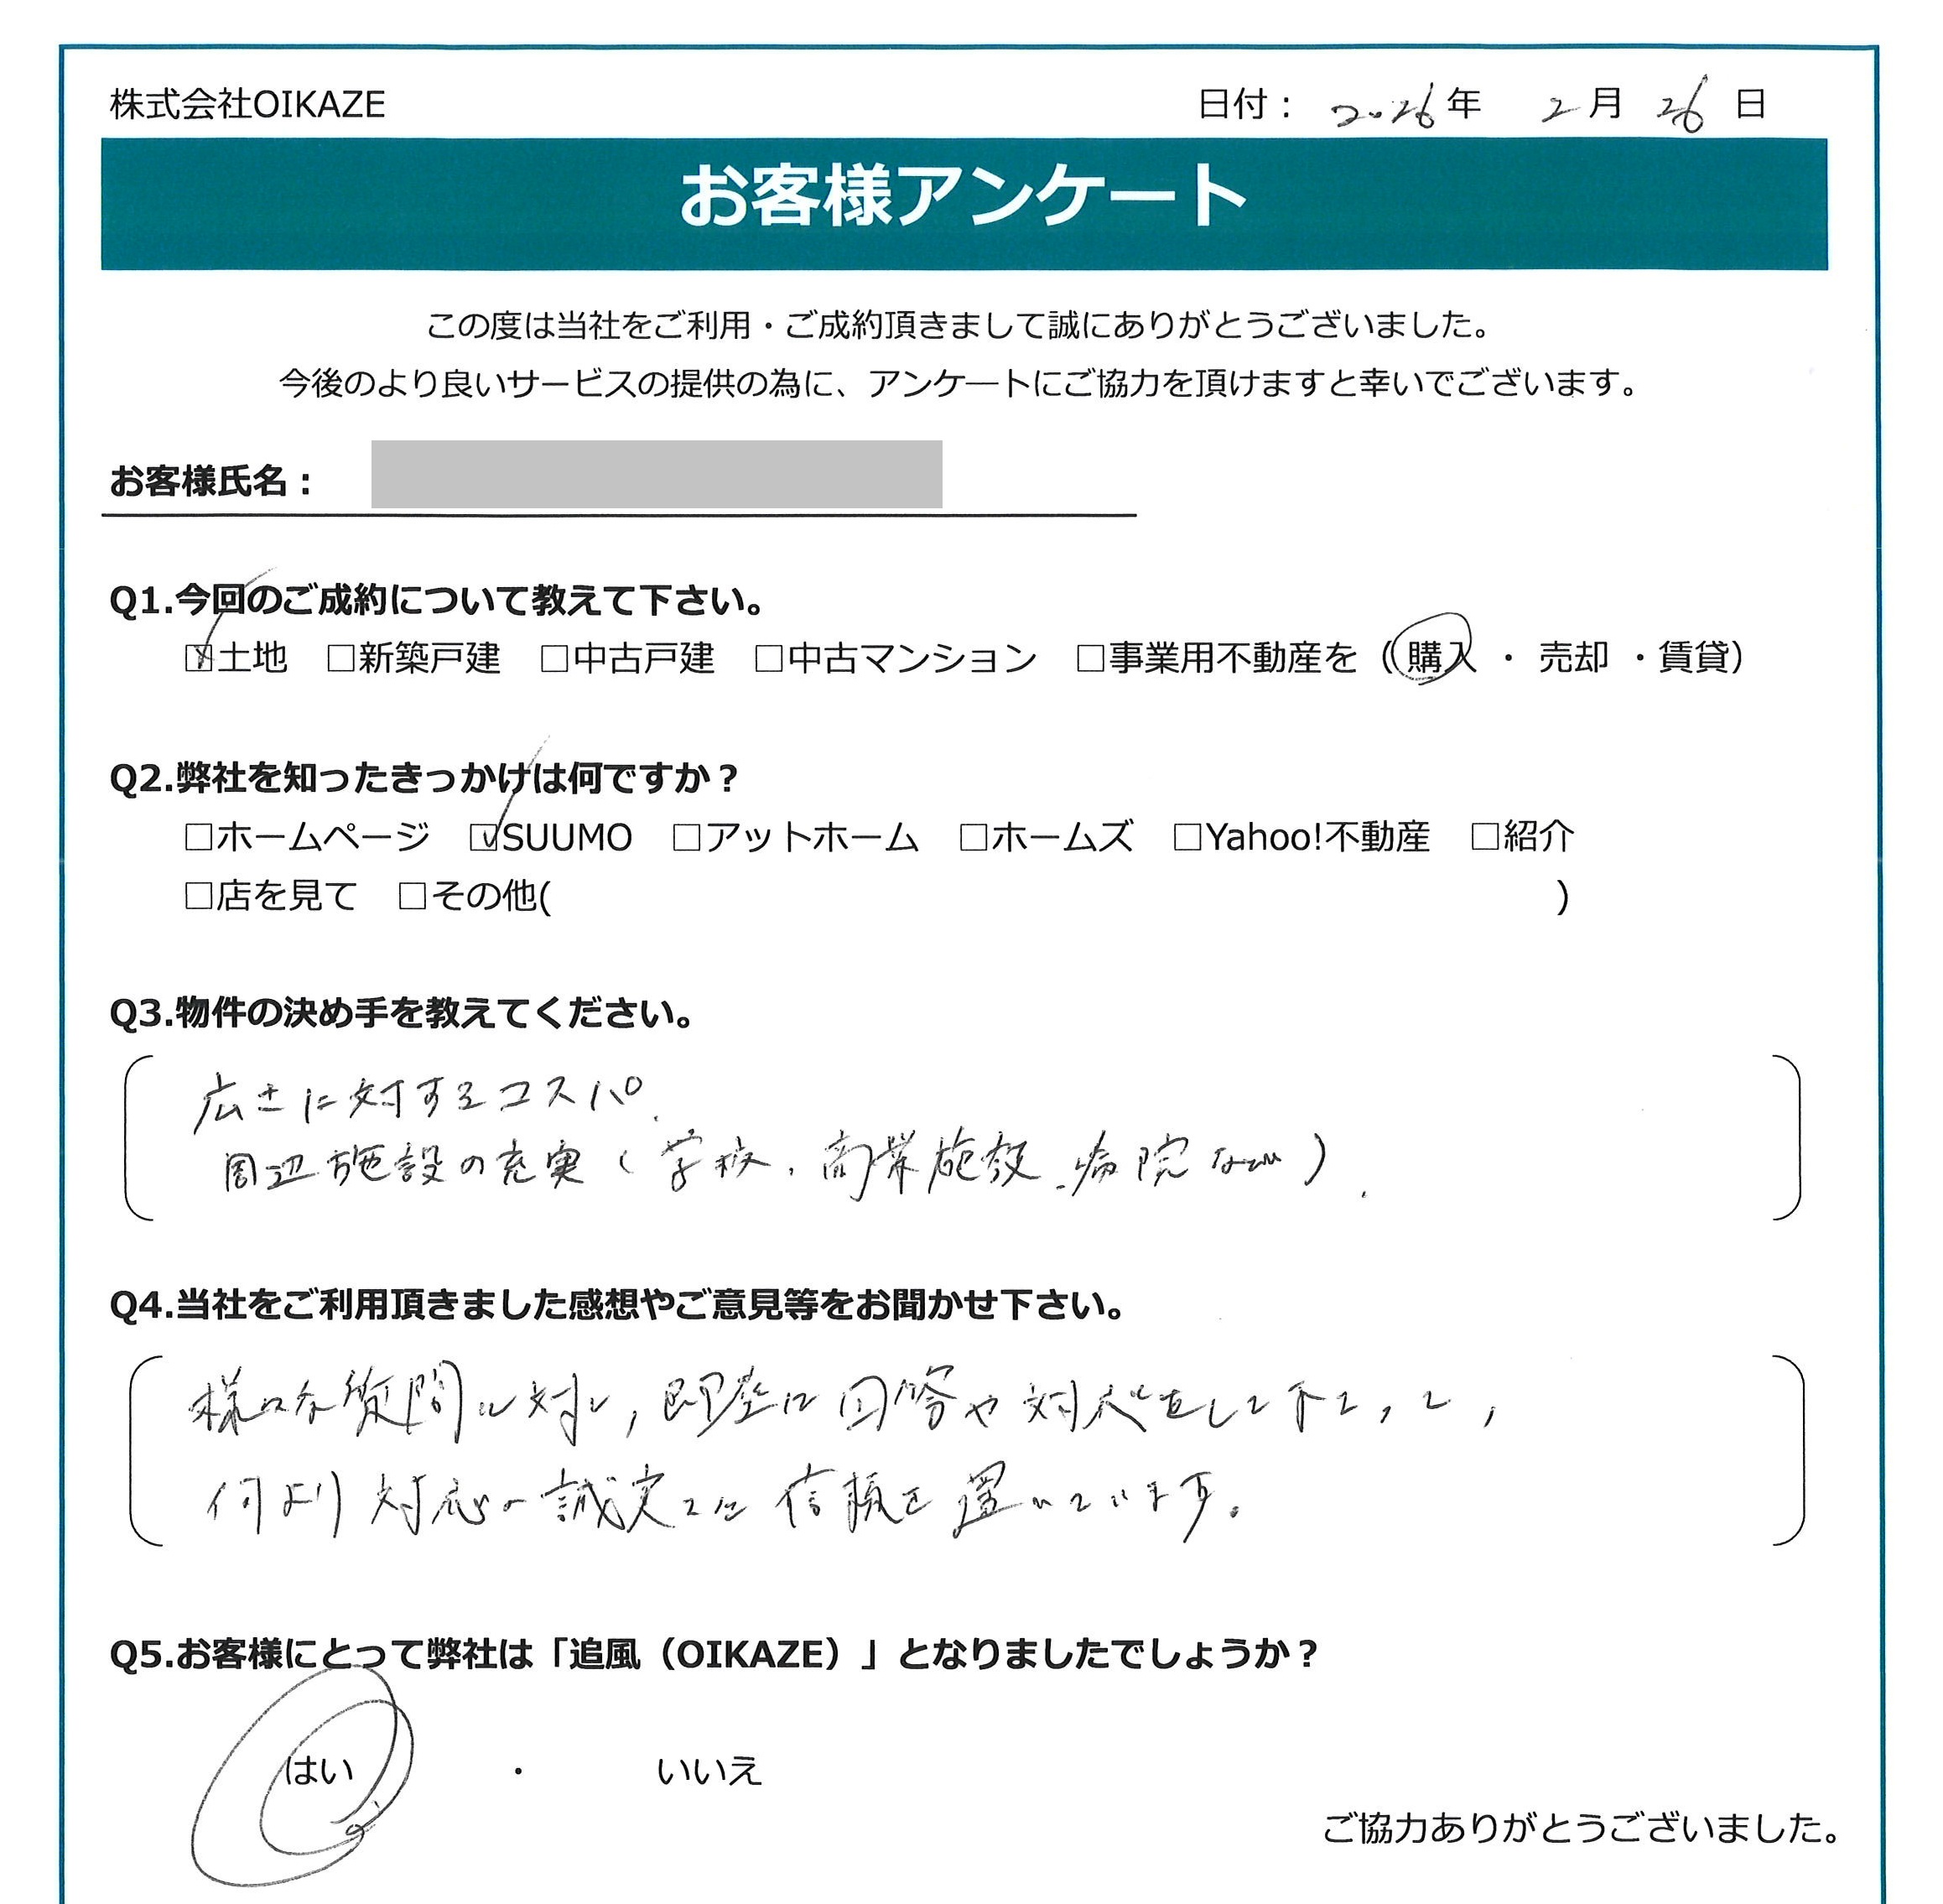 株式会社OIKAZE 日付： 2026年 2月 26日
お客様アンケート
この度は当社をご利用・ご成約頂きまして誠にありがとうございました。
今後のより良いサービスの提供の為に、アンケートにご協力を頂けますと幸いでございます。
お客様氏名：
Q1.今回のご成約について教えて下さい。
☑土地 □新築戸建 □中古戸建 □中古マンション □事業用不動産を（購入 ・ 売却 ・賃貸）
Q2.弊社を知ったきっかけは何ですか？
□ホームページ ☑SUUMO □アットホーム □ホームズ □Yahoo!不動産 □紹介
□店を見て □その他( )
Q3.物件の決め手を教えてください。
広さに対するコスパ、
周辺施設の充実（学校、商業施設、病院など）.
Q4.当社をご利用頂きました感想やご意見等をお聞かせ下さい。
様々な質問に対し,即座に回答や対応をして下さって,
何より対応の誠実さに信頼を置いています。
Q5.お客様にとって弊社は「追風（OIKAZE）」となりましたでしょうか？
はい ・ いいえ
ご協力ありがとうございました。